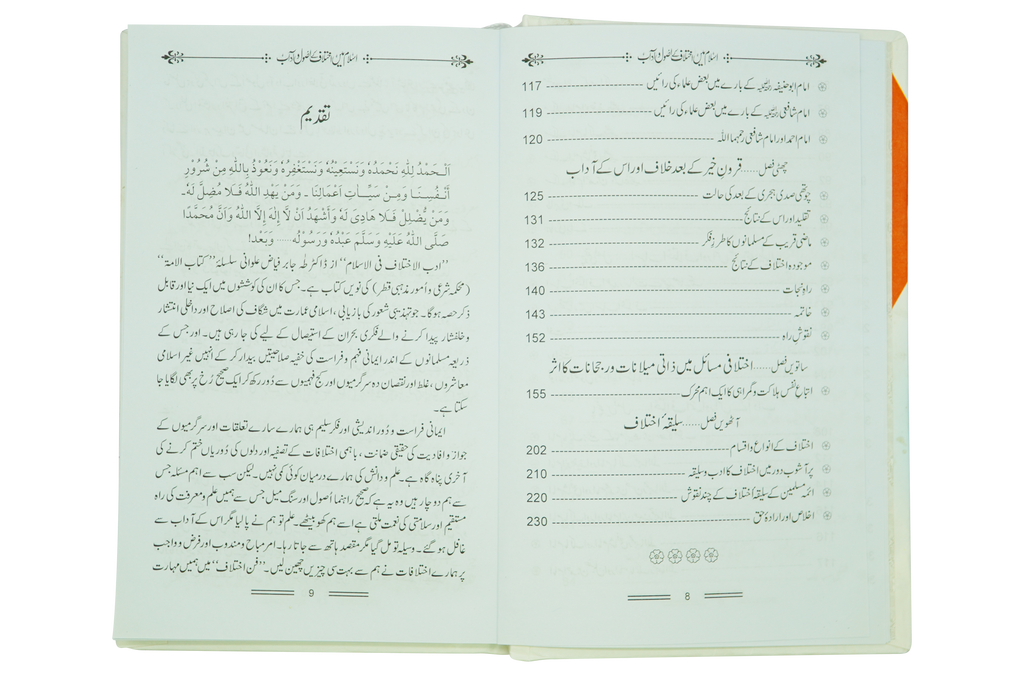 اسلام میں اختلاف کے اصول و آداب
امام ابو حنیفہ رحمۃ اللہ علیہ کے بارے میں بعض علماء کی رائیں ---------------- 117
امام شافعی رحمۃ اللہ علیہ کے بارے میں بعض علماء کی رائیں ---------------- 119
امام احمد اور امام شافعی رحمہما اللہ ---------------- 120
چھٹی فصل......قرونِ خیر کے بعد خلاف اور اس کے آداب
چوتھی صدی ہجری کے بعد کی حالت ---------------- 125
تقلید اور اس کے نتائج ---------------- 131
ماضی قریب کے مسلمانوں کا طرزِ فکر ---------------- 132
موجودہ اختلاف کے نتائج ---------------- 136
راہِ نجات ---------------- 140
خاتمہ ---------------- 143
نقوشِ راہ ---------------- 152
ساتویں فصل......اختلافی مسائل میں ذاتی میلانات ورجحانات کا اثر
اتباع نفس ہلاکت وگمراہی کا ایک اہم محرک ---------------- 155
آٹھویں فصل......سلیقۂ اختلاف
اختلاف کے انواع واقسام ---------------- 202
پرآشوب دور میں اختلاف کا ادب وسلیقہ ---------------- 210
ائمہ مسلمین کے سلیقۂ اختلاف کے چند نقوش ---------------- 220
اخلاص اور ارادۂ حق ---------------- 230
8
اسلام میں اختلاف کے اصول و آداب
تقدیم
اَلْحَمْدُ لِلّٰہِ نَحْمَدُہٗ وَنَسْتَعِیْنُہٗ وَنَسْتَغْفِرُہٗ وَنَعُوْذُ بِاللّٰہِ مِنْ شُرُوْرِ
أَنْفُسِنَا وَمِنْ سَیِّاٰتِ اَعْمَالِنَا ۔ وَمَنْ یَھْدِ اللّٰہُ فَلَا مُضِلَّ لَہٗ۔
وَمَنْ یُّضْلِلْ فَلَا ھَادِیَ لَہٗ وَأَشْھَدُ اَنْ لَّا إِلٰہَ إِلَّا اللّٰہُ وَاَنَّ مُحَمَّدًا
صَلَّی اللّٰہُ عَلَیْہِ وَسَلَّمَ عَبْدُہٗ وَرَسُوْلُہٗ...... وَبَعْد!
’’ادب الاختلاف فی الاسلام‘‘ از ڈاکٹر طٰہٰ جابر فیاض علوانی سلسلۂ ’’کتاب الامۃ‘‘
(محکمہ شرعی و اُمورِ مذہبی قطر) کی نویں کتاب ہے۔ جس کا ان کی کوششوں میں ایک نیا اور قابل
ذکر حصہ ہوگا۔ جو تہذیبی شعور کی بازیابی، اسلامی عمارت میں شگاف کی اصلاح اور داخلی انتشار
وخلفشار پیدا کرنے والے فکری بحران کے استیصال کے لیے کی جا رہی ہیں۔ اور جس کے
ذریعہ مسلمانوں کے اندر ایمانی فہم وفراست کی خفیہ صلاحیتیں بیدار کر کے انہیں غیر اسلامی
معاشروں، غلط اور نقصان دہ سرگرمیوں اور کج فہمیوں سے دُور رکھ کر ایک صحیح رُخ پر بھی لگایا جا
سکتا ہے۔
ایمانی فراست و دُور اندیشی اور فکرِ سلیم ہی ہمارے سارے تعلقات اور سرگرمیوں کے
جواز وافادیت کی حقیقی ضمانت، باہمی اختلافات کے تصفیہ اور دلوں کی دُوریاں ختم کرنے کی
آخری پناہ گاہ ہے۔ علم ودانش کی ہمارے درمیان کوئی کمی نہیں۔ لیکن سب سے اہم مسئلہ جس
سے ہم دوچار ہیں وہ یہ ہے کہ صحیح راہنما اُصول اور سنگ میل جس سے ہمیں علم ومعرفت کی راہِ
مستقیم اور سلامتی کی نعمت ملتی ہے اسے ہم کھو بیٹھے۔ علم تو ہم نے پا لیا مگر اس کے آداب سے
غافل ہو گئے۔ وسیلہ تو مل گیا مگر مقصد ہاتھ سے جاتا رہا۔ امر مباح ومندوب اور فرض و واجب
پر ہمارے اختلافات نے ہم سے بہت سی چیزیں چھین لیں۔ ’’فن اختلاف‘‘ میں ہمیں مہارت
9